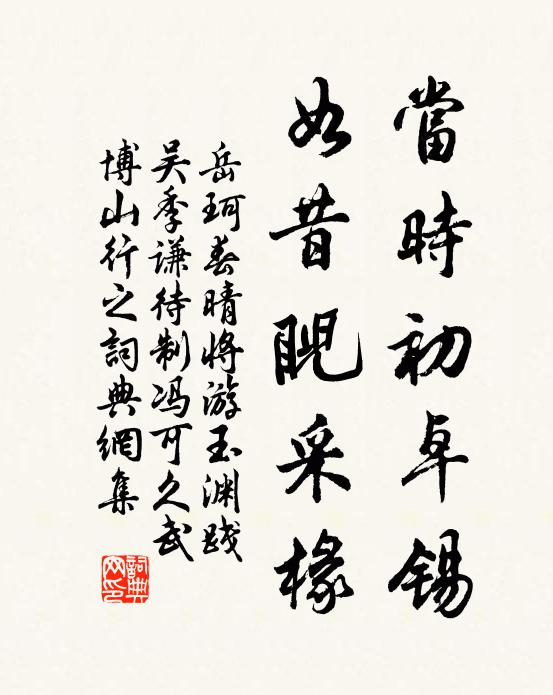 當時初卓錫
如昔睨采椽
岳珂春晴將游玉渊踐
吴季謙待制冯可久武
博山行之詞典網集
詞典网印